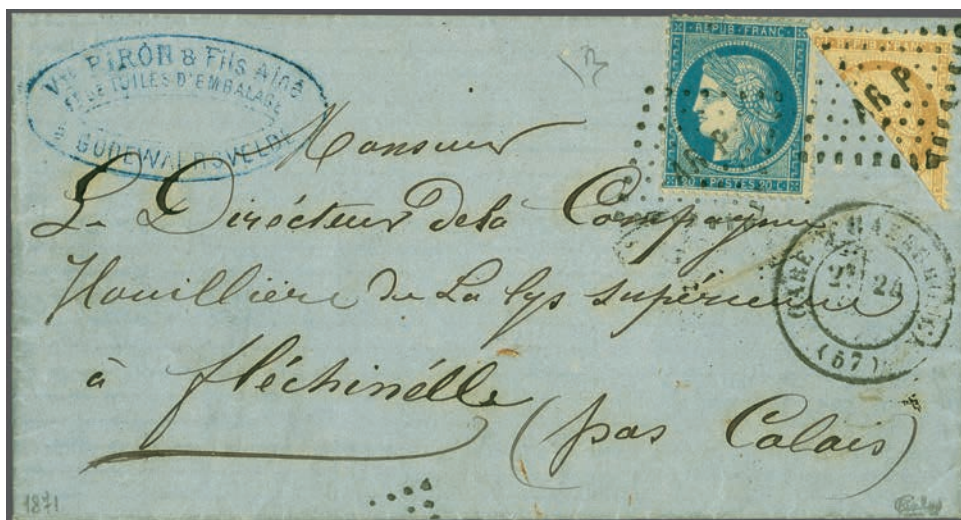 Vve PIRON & Fils Ainé
ET DE TOILES D'EMBALAGE
à GODEWAERSVELDE
REPUB · FRANC ·
20 POSTES 20 C
AR P
AR P
Monsieur
Le Directeur de la Compagnie
Houillière de La lys supérieure
à fléchinélle
(pas Calais)
GARE D' HAZEBROUCK
24
(57)
1871